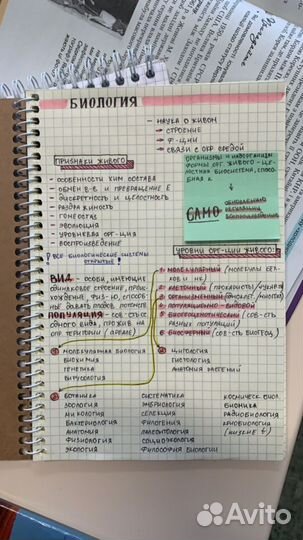 БИОЛОГИЯ
- НАУКА О ЖИВОМ
→ СТРОЕНИЕ
→ Ф-ЦИИ
→ СВЯЗИ С ОКР СРЕДОЙ
ПРИЗНАКИ ЖИВОГО
- ОСОБЕННОСТИ ХИМ СОСТАВА
- ОБМЕН В-В И ПРЕВРАЩЕНИЕ Е
- ДИСКРЕТНОСТЬ И ЦЕЛОСТНОСТЬ
- РАЗДРАЖИМОСТЬ
- ГОМЕОСТАЗ
- ЭВОЛЮЦИЯ
- УРОВНЕВАЯ ОРГ-ЦИЯ
- ВОСПРОИЗВЕДЕНИЕ
! ВСЕ БИОЛОГИЧЕСКИЕ СИСТЕМЫ ОТКРЫТЫЕ !
ОРГАНИЗМЫ И НАДОРГАНИЗМ.
ФОРМЫ ОРГ. ЖИВОГО - ЦЕ-
ЛОСТНАЯ БИОСИСТЕМА, СПОСОБ-
НАЯ К
САМО
ОБНОВЛЕНИЮ
РЕГУЛЯЦИИ
ВОСПРОИЗВЕДЕНИЮ
УРОВНИ ОРГ-ЦИИ ЖИВОГО:
1. МОЛЕКУЛЯРНЫЙ (МОЛЕКУЛЫ БЕЛ-
КОВ И НК)
2. КЛЕТОЧНЫЙ
3. ОРГАНИЗМЕННЫЙ
4. ПОПУЛЯЦИОННО-ВИДОВОЙ
5. БИОГЕОЦЕНОТИЧЕСКИЙ (СОВ-СТЬ
РАЗНЫХ ПОПУЛЯЦИЙ)
6. БИОСФЕРНЫЙ (СОВ-СТЬ БИОГЕОЦ.)
ВИД - ОСОБИ, ИМЕЮЩИЕ
ОДИНАКОВОЕ СТРОЕНИЕ, ПРОИС-
ХОЖДЕНИЕ, ФИЗ-Ю, СПОСОБ-
НЫЕ ДАВАТЬ ПЛОДОВ. ПОТОМСТВО
ПОПУЛЯЦИЯ - СОВ-СТЬ ОС
ОДНОГО ВИДА, ПРОЖИВ НА
ОПР ТЕРРИТОРИИ (АРЕАЛЕ)
1 МОЛЕКУЛЯРНАЯ БИОЛОГИЯ
БИОХИМИЯ
ГЕНЕТИКА
ВИРУСОЛОГИЯ
2 ЦИТОЛОГИЯ
ГИСТОЛОГИЯ
АНАТОМИЯ РАСТЕНИЙ
3 БОТАНИКА
ЗООЛОГИЯ
МИКОЛОГИЯ
БАКТЕРИОЛОГИЯ
АНАТОМИЯ
ФИЗИОЛОГИЯ
ЭКОЛОГИЯ
СИСТЕМАТИКА
ЭМБРИОЛОГИЯ
СЕЛЕКЦИЯ
ФИЛОГЕНИЯ
ПАЛЕОНТОЛОГИЯ
СОЦИОЭКОЛОГИЯ
ФИЛОСОФИЯ БИОЛОГИИ
КОСМИЧЕСК. БИОЛ.
БИОНИКА
РАДИОБИОЛОГИЯ
КРИОБИОЛОГИЯ
(НИЗКИЕ t)
Avito